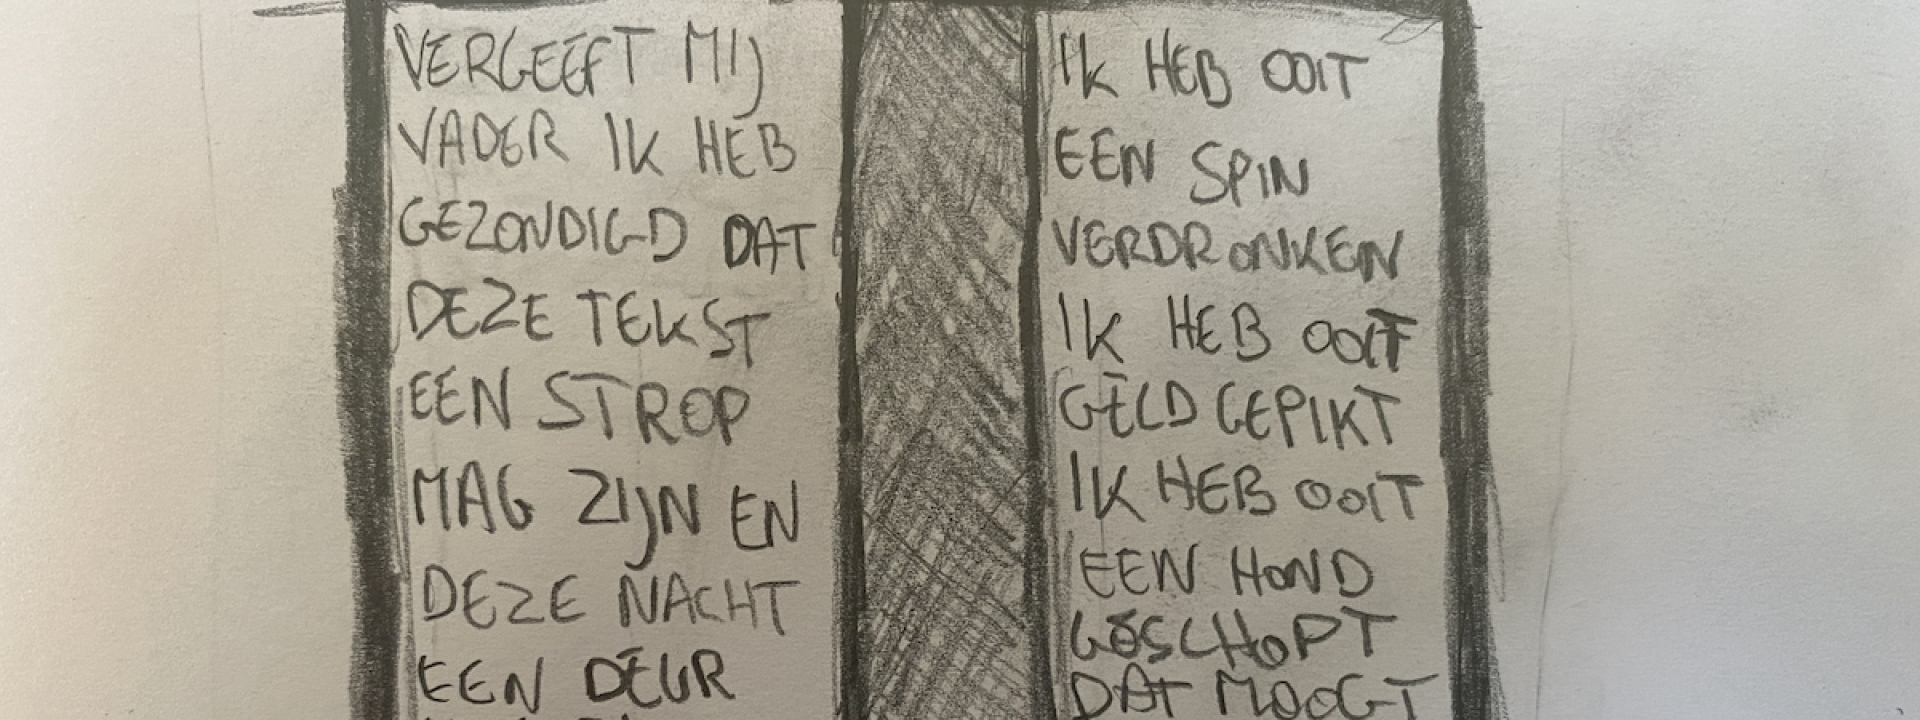 VERGEEFT MIJ
VADER IK HEB
GEZONDIGD DAT
DEZE TEKST
EEN STROP
MAG ZIJN EN
DEZE NACHT
EEN DEUR
IK HEB OOIT
EEN SPIN
VERDRONKEN
IK HEB OOIT
GELD GEPIKT
IK HEB OOIT
EEN HOND
GESCHOPT
DAT MOOGT